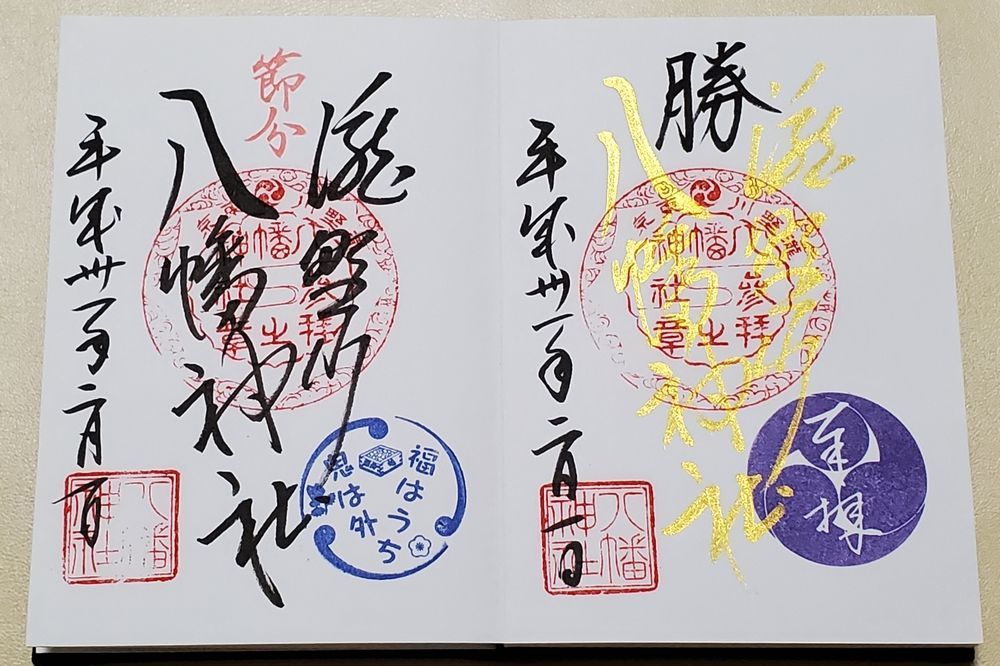 勝
瀧野川
八幡神社
奉拝
平成卅一年二月一日
八幡神社
八幡神社参拝之章
節分
瀧野川
八幡神社
福はうち
鬼は外
平成卅一年二月一日
八幡神社
八幡神社参拝之章